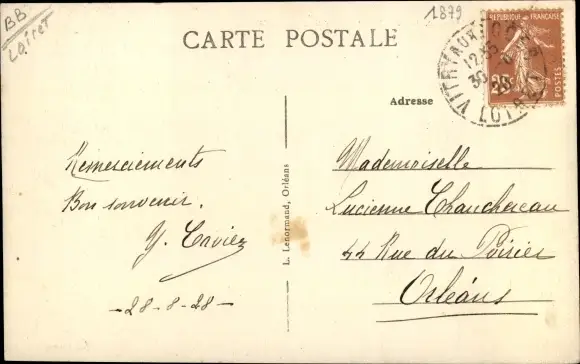 BB
Loiret
1879
CARTE POSTALE
REPUBLIQUE FRANÇAISE
POSTES
VITRY AUX LOGES
12
30
28
LOIRET
Adresse
Remerciements
Bon souvenir.
-28-8-28-
L. Lenormand, Orléans
Mademoiselle
Lucienne Chauchereau
44 Rue du Poirier
Orléans